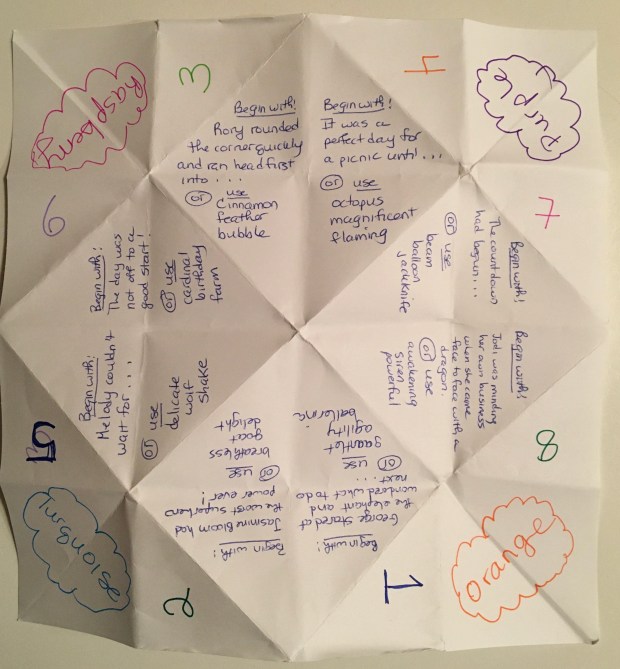 Raspberry
3
4
Purple
Begin with!
Rory rounded
the corner quickly
and ran head first
into . . .
or use
cinnamon
feather
bubble
Begin with!
It was a
perfect day for
a picnic until . . .
or use
octopus
magnificent
flaming
7
Begin with!
The countdown
had begun . . .
or use
beam
balloon
jackknife
8
Begin with!
Jodi was minding
her own business
when she came
face to face with a
dragon.
or use
awakening
siren
powerful
Orange
1
Begin with!
George stared at
the elephant and
wondered what to do
next . . .
or use
gauntlet
agility
ballerina
2
Begin with!
Jasmine Bloom had
the worst superhero
power ever!
or use
breathless
goat
delight
Turquoise
5
Begin with!
Melody couldn't
wait for . . .
or use
delicate
wolf
shake
6
Begin with!
The day was
not off to a
good start!
or use
cardinal
birthday
farm